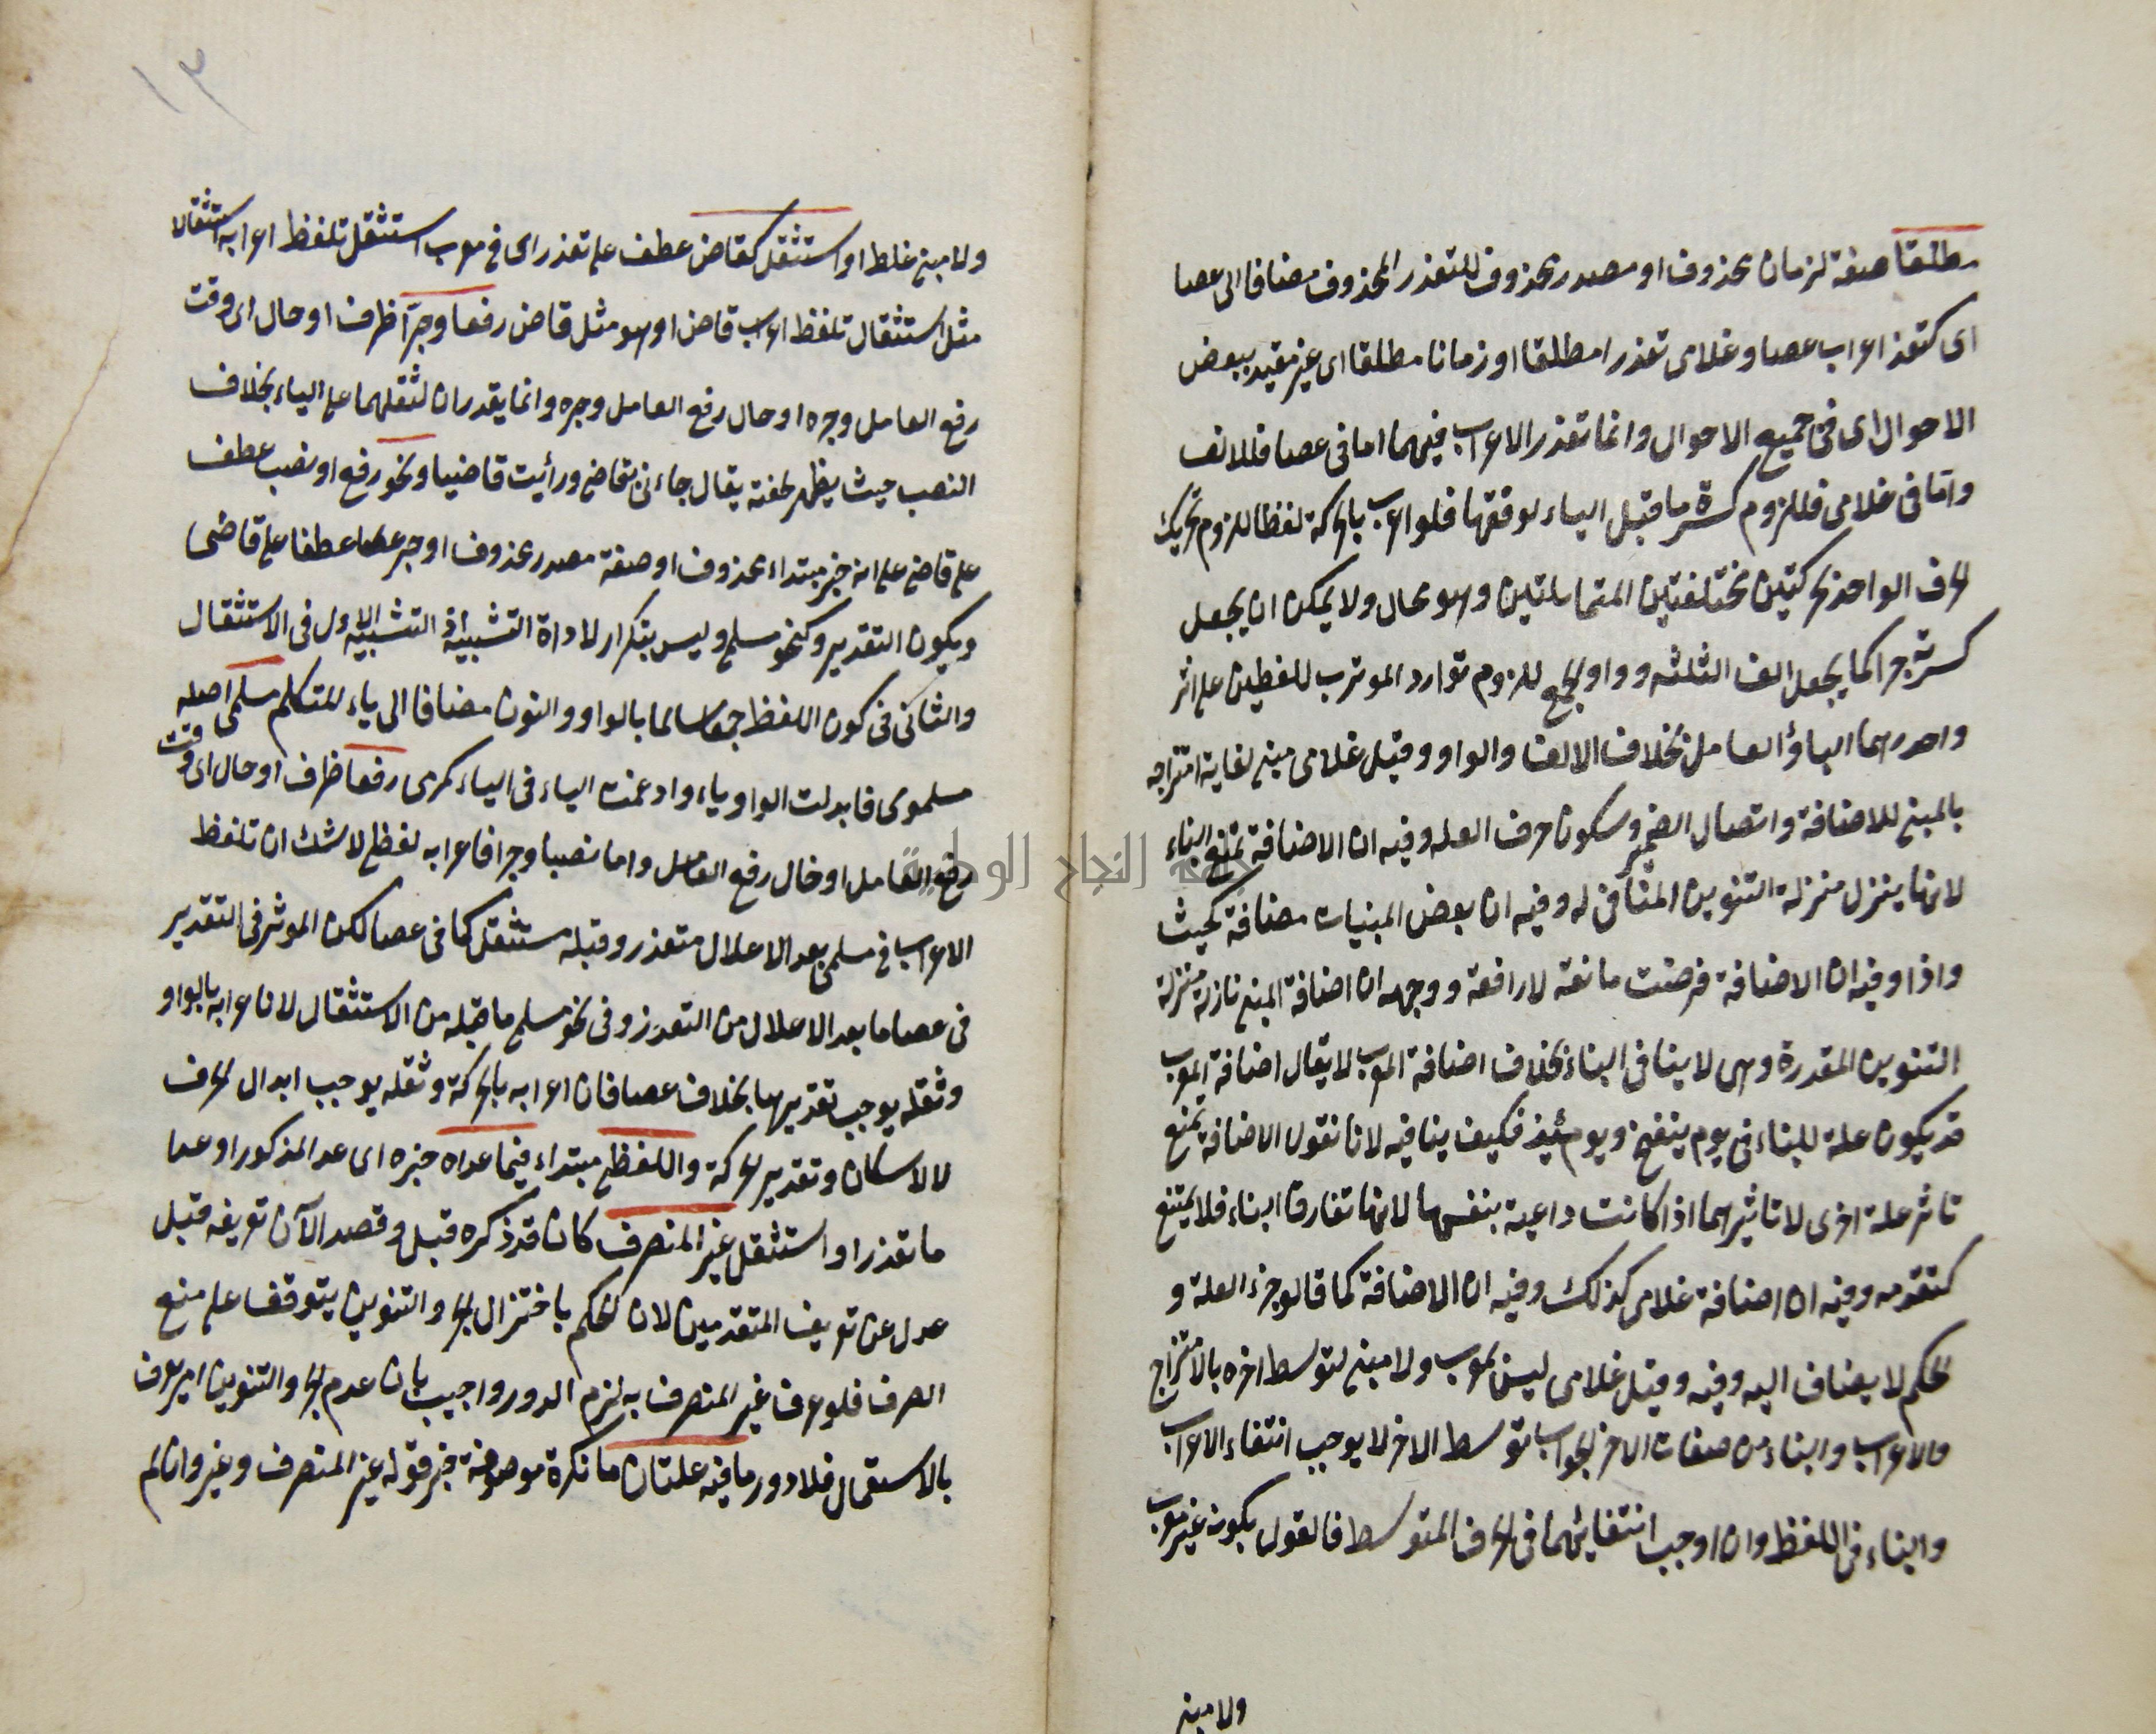 مطلقا صفة لزمان محذوف او مصدر محذوف للتعذر المحذوف مضافا الى عصا
اى كتعذر اعراب عصا وغلامى تعذرا مطلقا او زمانا مطلقا اى غير مقيد ببعض
الاحوال اى فى جميع الاحوال وانما تعذر الاعراب فيهما اما فى عصا فللالف
واما فى غلامى فللزوم كسرة ما قبل الياء لوفقها فلو اعرب بالحركة لفظا للزوم تحريك
الحرف الواحد بحركتين مختلفتين المتماثلتين وهو محال ولا يمكن ان يجعل
كسرته جرا كما يجعل الف التثنيه وواو الجمع للزوم توارد الموثرين اللفظين على اثر
واحد هما الياؤ العامل بخلاف الالف والواو وقيل غلامى مبنى لغاية امتزاجه
بالمبنى للاضافة واتصال الضمير وسكون حرف العله وفيه ان الاضافة تمنع البناء
لانها ينزل منزلة التنوين المنافى له وفيه ان بعض المبنيات مضافة كحيث
واذا وفيه ان الاضافة فرضت مانعة لا رافعة ووجهه ان اضافة المبنى نازلة منزلة
التنوين المقدرة وهى لا ينافى البناء بخلاف اضافة المعرب لا يقال اضافة المعرب
قد يكون علة للبناء فى يوم ينفخ ويومئيذ فكيف ينافيه لانا نقول الاضافة يمنع
تاثر علة اخرى لا تاثيرهما اذا كانت داعية بنفسها لانها تفارقا ابناء فلا يمتنع
كتقدمه وفيه ان اضافة غلامى كذلك وفيه ان الاضافة كما قالو جزء العلة و
الحكم لا يضاف اليه وفيه وقيل غلامى ليس بمعرب ولا مبنى لتوسط اخره بالامتزاج
والاعراب وابناء من صفات الاخر الجواب توسط الاخر لا يوجب انتفاء الاعراب
وابناء فى اللفظ وان اوجب انتفائهما فى الحرف المتوسط فالقول بكونه غير معرب
ولا مبنى
١٣
ولا مبنى غلط او استثقل كقاض عطف على تعذر اى فى معرب استثقل تلفظ اعرابه استثقالا
مثل استثقال تلفظ اعراب قاض او هو مثل قاض رفعا وجرا ظرف او حال اى وقت
رفع العامل وجره او حال رفع العامل وجره وانما يقدران لثقلهما على الياء بخلاف
النصب حيث يظهر لخفته يقال جاءنى قاض ورأيت قاضيا ونحو رفع او نصب عطف
على قاض على انه خبر مبتداء محذوف او صفة مصدر محذوف او جر عصا عطفا على قاضى
ويكون التقدير وكنحو مسلمى وليس بتكرار لاداة التشبيه اذ التشبيه الاول فى الاستثقال
والثانى فى كون اللفظ جمعا سالما بالواو والنون مضافا الى ياء للمتكلم مسلمى اصله
مسلموى فابدلت الواو ياء وادغمت الياء فى الياء كمرى رفعا ظرف او حال اى وقت
رفع العامل او حال رفع العامل واما نصبا وجرا فاعرابه لفظى لا شك ان تلفظ
الاعراب فى مسلمى بعد الاعلال متعذر وقبله مستثقل كما فى عصا لكن الموثر فى التقدير
فى عصا ما بعد الاعلال من التعذر وفى نحو مسلمى ما قبله من الاستثقال لان اعرابه بالواو
وثقله يوجب تقديرها بخلاف عصا فان اعرابه بالحركة وثقله يوجب ابدال الحرف
لا لاسكان وتقدير الحركة واللفظى مبتداء فيما عداه خبره اى عد المذكور او عدا
ما تعذر او استثقل غير المنصرف كان قد ذكره قبل وقصد الآن تعريفه قبل
عدل عن تعريف المتقدمين لان الحكم باختزال الجر والتنوين يتوقف على منع
الصرف فلو عرف غير المنصرف به لزم الدور واجيب بان عدم الجر والتنوين امر يعرف
بالاستعمال فلا دور ما فيه علتان ما نكرة موصوفة خبر قوله غير المنصرف وغير وان لم